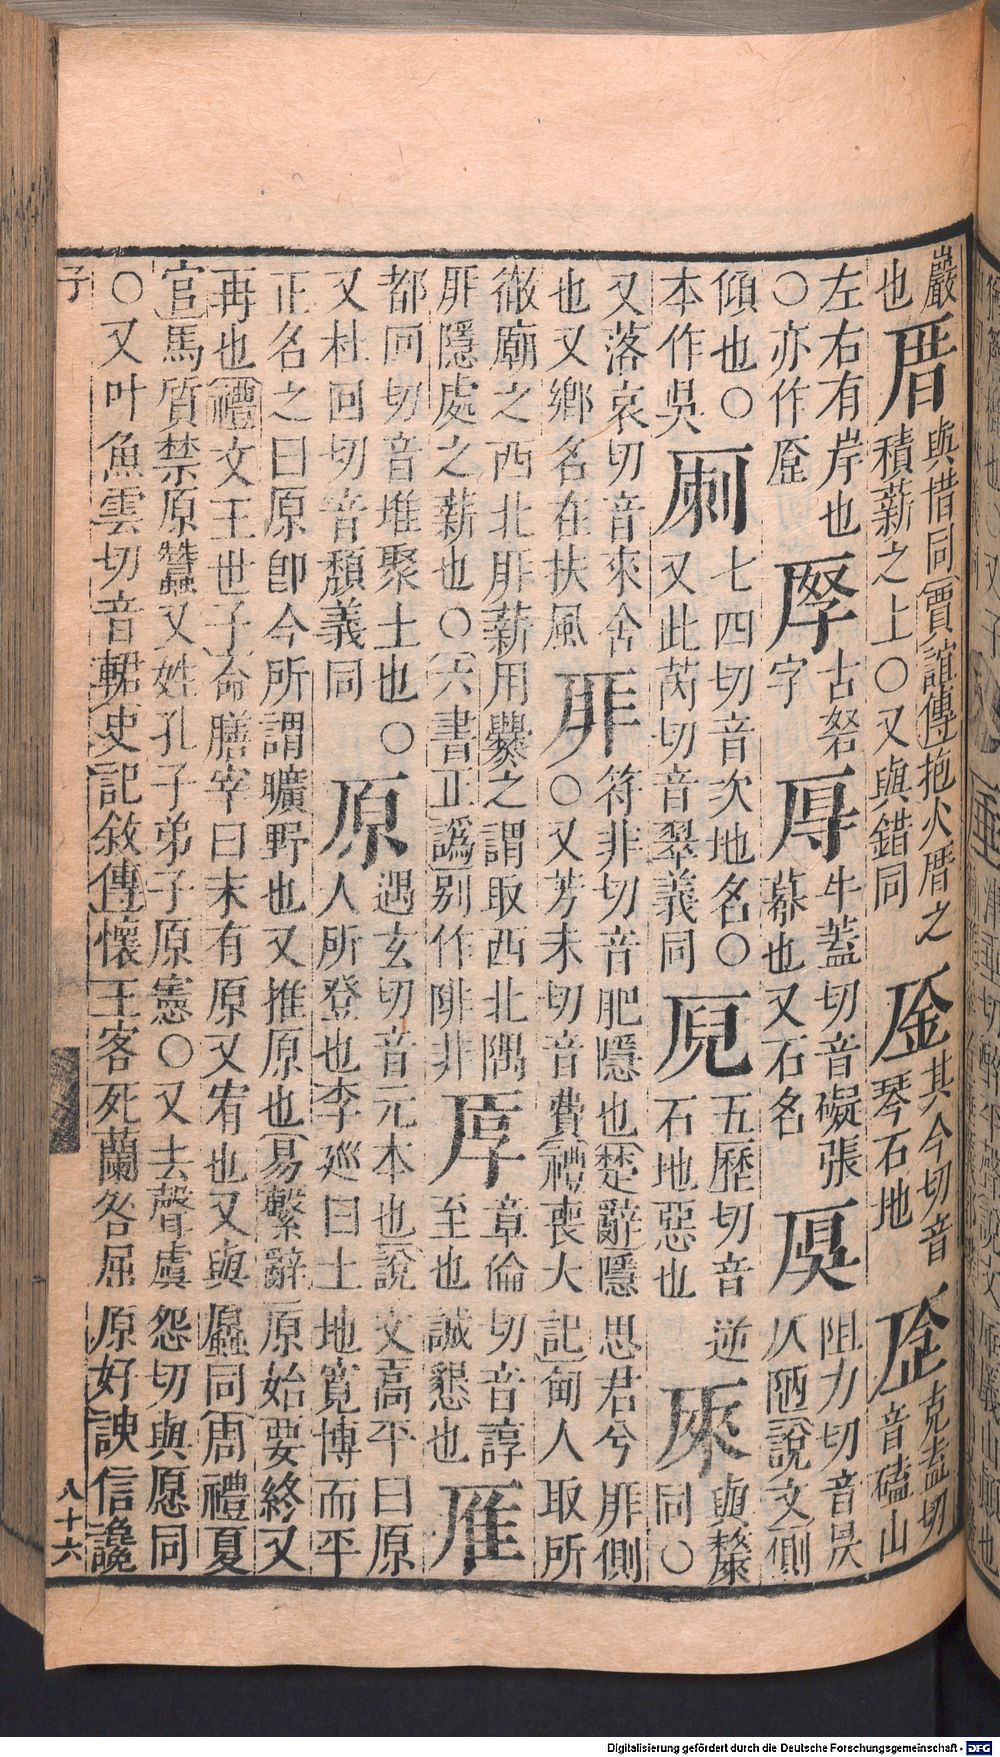 巖也厝與惜同賈誼傳抱火厝之積薪之上〇又與錯同㕋其今切音琴石地㕎克盍切音磕山
左右有岸也〇亦作字牛蓋切音礙張幕也又石名阻力切音昃仄陋說文側
傾也〇本作七四切音次地名〇又此芮切音翠義同五歷切音逆石地惡也與斄同〇
又落哀切音來舍也又鄉名在扶風厞符非切音肥隱也楚辭隱思君兮厞側〇又芳未切音費禮喪大記甸人取所
徹廟之西北厞薪用爨之謂取西北隅厞隱處之薪也〇六書正譌别作陫非章倫切音諄至也誠懇也
都回切音堆聚土也〇又杜回切音頹義同原遇玄切音元本也說文高平曰原人所登也李廵曰土地寬博而平
正名之曰原卽今所謂曠野也又推原也易繫辭原始要終又再也禮文王世子命膳宰曰末有原又宥也又與厵同周禮夏
官馬質禁原蠶又姓孔子弟子原憲〇又去聲虞怨切與愿同〇又叶魚雲切音輑史記敘傳懷王客死蘭咎屈原好諛信讒
子
八十六
Digitalisierung gefördert durch die Deutsche Forschungsgemeinschaft - DFG